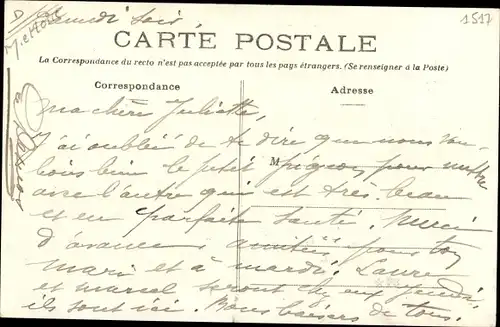 Lundi soir
1517
CARTE POSTALE
La Correspondance du recto n'est pas acceptée par tous les pays étrangers. (Se renseigner à la Poste)
Correspondance
Adresse
Ma chère Juliette,
J'ai oublié de te dire que nous vou-
M
lions bien le petit pigeon pour mettre
avec l'autre qui est très beau
et en parfaite santé. Merci
d'avance, amitiés pour ton
mari et à mardi. Laure
et Marcel seront chez eux jeudi,
ils sont ici. Bons baisers de tous.